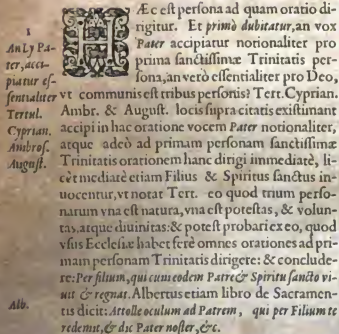 HÆc est persona ad quam oratio di-
rigitur. Et primò dubitatur, an vox
Pater accipiatur notionaliter pro
prima sanctissimæ Trinitatis per-
sona, an verò essentialiter pro Deo,
vt communis est tribus personis? Tert. Cyprian.
Ambr. & August. locis supra citatis existimant
accipi in hac oratione vocem Pater notionaliter,
atque adeò ad primam personam sanctissimæ
Trinitatis orationem hanc dirigi immediatè, li-
cèt mediatè etiam Filius & Spiritus sanctus in-
uocentur, vt notat Tert. eo quod trium perso-
narum vna est natura, vna est potestas, & volun-
tas, atque diuinitas: & potest probari ex eo, quod
vsus Ecclesiæ habet ferè omnes orationes ad pri-
mam personam Trinitatis dirigere: & conclude-
re: Per filium, qui cum eodem Patre & Spiritu sancto vi-
uit & regnat. Albertus etiam libro de Sacramen-
tis dicit: Attolle oculum ad Patrem, qui per Filium te
redemit, & dic Pater noster, &c.
1
An Ly Pa-
ter, acci-
piatur es-
sentialiter
Tertul.
Cyprian.
Ambros.
August.
Alb.